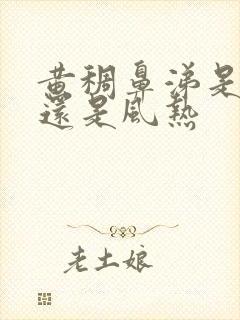 黄稠鼻涕是
還是風熱
老土娘